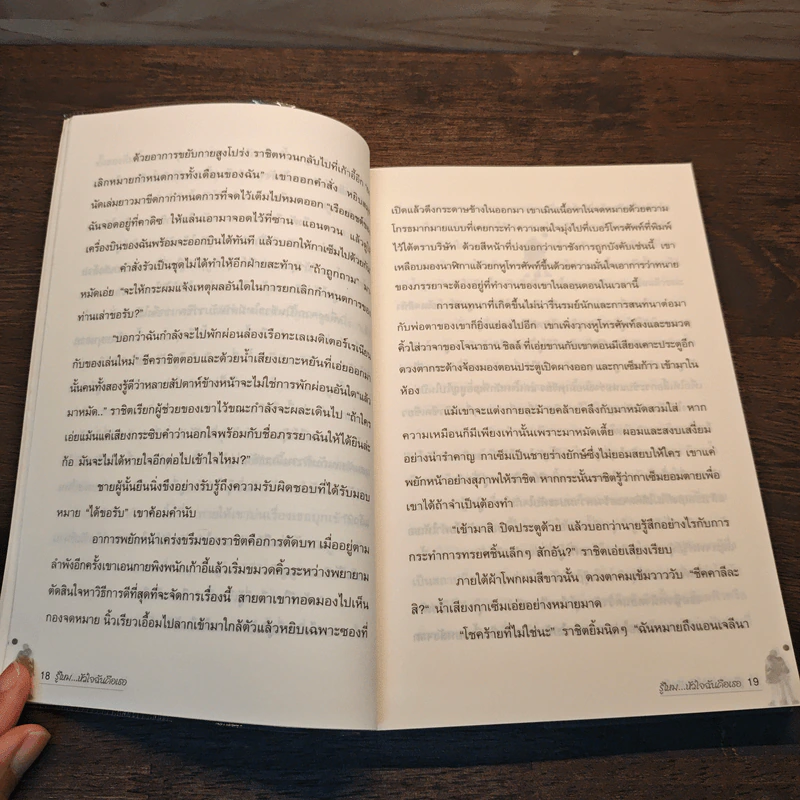 ด้วยอาการขยับกายสูงโปร่ง ราชิตหวนกลับไปที่เก้าอี้อีก
เลิกหมายกำหนดการทั้งเดือนของฉัน” เขาออกคำสั่ง หยิบ
นัดเล่มยาวมาขีดกากำหนดการที่จดไว้เต็มไปหมดออก “เรือยอชต์
ฉันจอดอยู่ที่คาดิซ ให้แล่นเอามาจอดไว้ที่ซาน แอนตวน แล้ว
เครื่องบินของฉันพร้อมจะออกบินได้ทันที แล้วบอกให้กาเซ็มไปด้วยกัน
คำสั่งรัวเป็นชุดไม่ได้ทำให้อีกฝ่ายสะท้าน “ถ้าถูกถาม”
หมัดเอ่ย “จะให้กระผมแจ้งเหตุผลอันใดในการยกเลิกกำหนดการของ
ท่านเล่าขอรับ?”
“บอกว่าฉันกำลังจะไปพักผ่อนล่องเรือทะเลเมดิเตอร์เรเนียน
กับของเล่นใหม่” ชีคราชิตตอบและด้วยน้ำเสียงเยาะหยันที่เอ่ยออกมา
นั้นคนทั้งสองรู้ดีว่าหลายสัปดาห์ข้างหน้าจะไม่ใช่การพักผ่อนอันใด “แล้ว
มาหมัด..” ราชิตเรียกผู้ช่วยของเขาไว้ขณะกำลังจะผละเดินไป “ถ้าใคร
เอ่ยแม้นแค่เสียงกระซิบคำว่านอกใจพร้อมกับชื่อภรรยาฉันให้ได้ยินล่ะ
ก้อ มันจะไม่ได้หายใจอีกต่อไปเข้าใจไหม?”
ชายผู้นั้นยืนนิ่งขึงอย่างรับรู้ถึงความรับผิดชอบที่ได้รับมอบ
หมาย “ได้ขอรับ” เขาค้อมคำนับ
อาการพยักหน้าเคร่งขรึมของราชิตคือการตัดบท เมื่ออยู่ตาม
ลำพังอีกครั้งเขาเอนกายพิงพนักเก้าอี้แล้วเริ่มขมวดคิ้วระหว่างพยายาม
ตัดสินใจหาวิธีการดีที่สุดที่จะจัดการเรื่องนี้ สายตาเขาทอดมองไปเห็น
กองจดหมาย นิ้วเรียวเอื้อมไปลากเข้ามาใกล้ตัวแล้วหยิบเฉพาะซองที่
18 รู้ไหม...หัวใจฉันคือเธอ
เปิดแล้วดึงกระดาษข้างในออกมา เขาเมินเนื้อหาในจดหมายด้วยความ
โกรธมากมายแบบที่เคยกระทำ ความสนใจมุ่งไปที่เบอร์โทรศัพท์ที่พิมพ์
ไว้ใต้ตราบริษัท ด้วยสีหน้าที่บ่งบอกว่าเขาชังการถูกบังคับเช่นนี้ เขา
เหลือบมองนาฬิกาแล้วยกหูโทรศัพท์ขึ้นด้วยความมั่นใจเอาการว่าทนาย
ของภรรยาจะต้องอยู่ที่ทำงานของเขาในลอนดอนในเวลานี้
การสนทนาที่เกิดขึ้นไม่น่ารื่นรมย์นักและการสนทนาต่อมา
กับพ่อตาของเขาก็ยิ่งแย่ลงไปอีก เขาเพิ่งวางหูโทรศัพท์ลงและขมวด
คิ้วใส่วาจาของโจนาธาน ชิลส์ ที่เอ่ยขานกับเขาตอนมีเสียงเคาะประตูอีก
ดวงตากระด้างจ้องมองตอนประตูเปิดผางออก และกาเซ็มก้าว เข้ามาใน
ห้อง
แม้เขาจะแต่งกายละม้ายคล้ายคลึงกับมาหมัดสวมใส่ หาก
ความเหมือนก็มีเพียงเท่านั้นเพราะมาหมัดเตี้ย ผอมและสงบเสงี่ยม
อย่างน่ารำคาญ กาเซ็มเป็นชายร่างยักษ์ซึ่งไม่ยอมสยบให้ใคร เขาแค่
พยักหน้าอย่างสุภาพให้ราชิต หากกระนั้นราชิตรู้ว่ากาเซ็มยอมตายเพื่อ
เขาได้ถ้าจำเป็นต้องทำ
“เข้ามาสิ ปิดประตูด้วย แล้วบอกว่านายรู้สึกอย่างไรกับการ
กระทำการทรยศชิ้นเล็กๆ สักอัน?” ราชิตเอ่ยเสียงเรียบ
ภายใต้ผ้าโพกผมสีขาวนั้น ดวงตาคมเข้มวาววับ “ชีคคาลีละ
สิ?” น้ำเสียงกาเซ็มเอ่ยอย่างหมายมาด
“โชคร้ายที่ไม่ใช่นะ” ราชิตยิ้มนิดๆ “ฉันหมายถึงแอนเจลีนา
รู้ไหม...หัวใจฉันคือเธอ 19